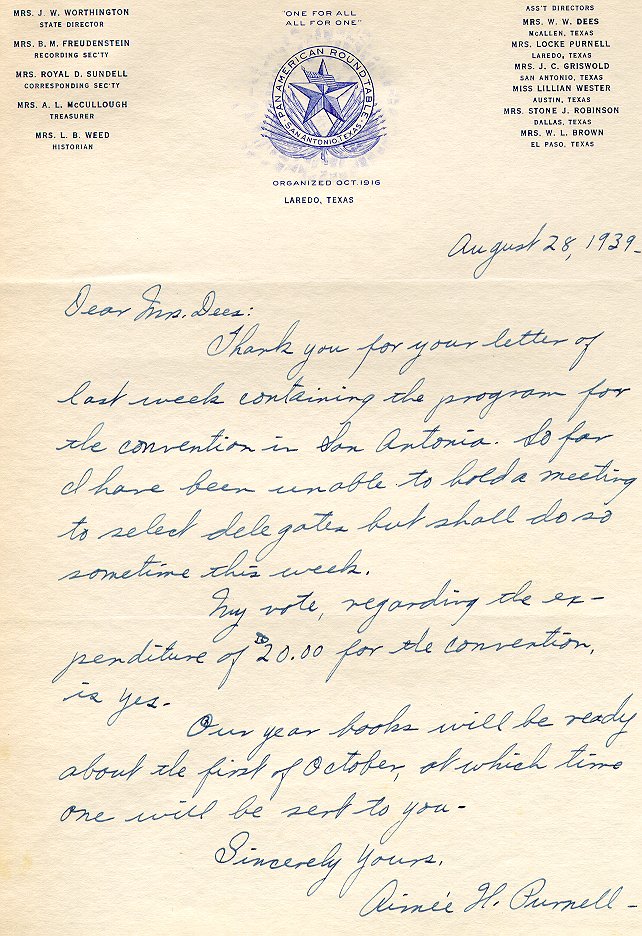 MRS. J. W. WORTHINGTON
STATE DIRECTOR
MRS. B. M. FREUDENSTEIN
RECORDING SEC'TY
MRS. ROYAL D. SUNDELL
CORRESPONDING SEC'TY
MRS. A. L. McCULLOUGH
TREASURER
MRS. L. B. WEED
HISTORIAN
"ONE FOR ALL
ALL FOR ONE"
PAN AMERICAN ROUND TABLE
SAN ANTONIO, TEXAS
ORGANIZED OCT. 1916
LAREDO, TEXAS
ASS'T DIRECTORS
MRS. W. W. DEES
McALLEN, TEXAS
MRS. LOCKE PURNELL
LAREDO, TEXAS
MRS. J. C. GRISWOLD
SAN ANTONIO, TEXAS
MISS LILLIAN WESTER
AUSTIN, TEXAS
MRS. STONE J. ROBINSON
DALLAS, TEXAS
MRS. W. L. BROWN
EL PASO, TEXAS
August 28, 1939-
Dear Mrs. Dees:
Thank you for your letter of
last week containing the program for
the convention in San Antonia. So far
I have been unable to hold a meeting
to select delegates but shall do so
sometime this week.
My vote, regarding the ex-
penditure of $20.00 for the convention,
is yes.
Our year books will be ready
about the first of October, at which time
one will be sent to you-
Sincerely Yours,
Aimée H. Purnell-